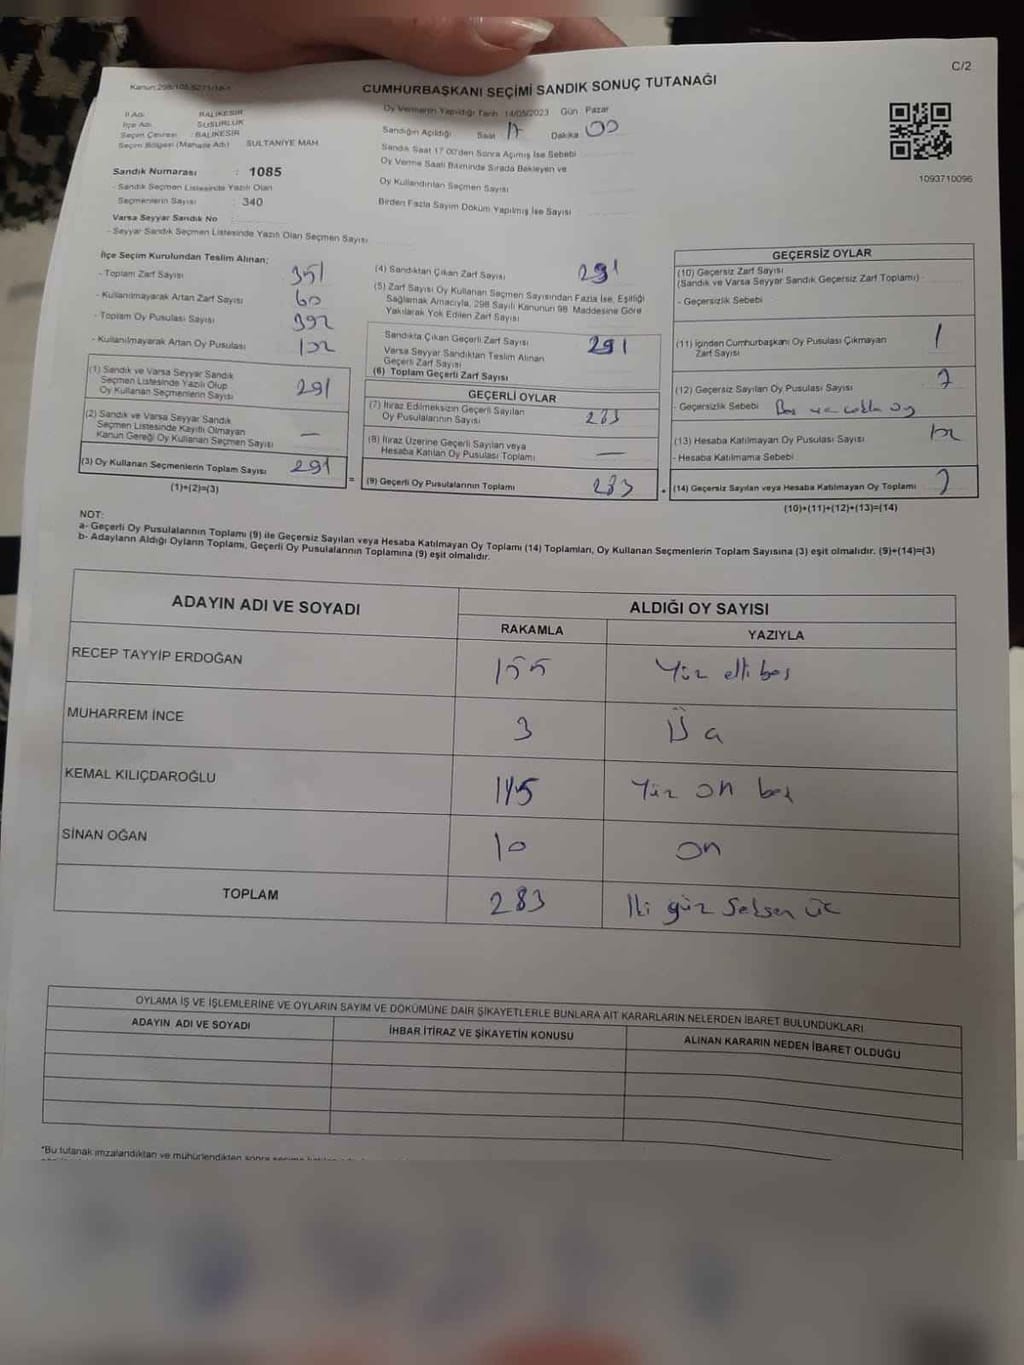 C/2
Kanun:298/105,6271/18-1
CUMHURBAŞKANI SEÇİMİ SANDIK SONUÇ TUTANAĞI
İl Adı : BALIKESİR
İlçe Adı : SUSURLUK
Seçim Çevresi : BALIKESİR
Seçim Bölgesi (Mahalle Adı) SULTANİYE MAH.
Oy Vermenin Yapıldığı Tarih 14/05/2023 Gün Pazar
Sandığın Açıldığı Saat 17 Dakika 00
Sandık Saat 17.00'den Sonra Açılmış İse Sebebi
Oy Verme Saati Bitiminde Sırada Bekleyen ve
Oy Kullandırılan Seçmen Sayısı
Birden Fazla Sayım Döküm Yapılmış İse Sayısı
1093710096
Sandık Numarası : 1085
- Sandık Seçmen Listesinde Yazılı Olan
Seçmenlerin Sayısı : 340
Varsa Seyyar Sandık No
- Seyyar Sandık Seçmen Listesinde Yazılı Olan Seçmen Sayısı
İlçe Seçim Kurulundan Teslim Alınan;
- Toplam Zarf Sayısı 351
- Kullanılmayarak Artan Zarf Sayısı 60
- Toplam Oy Pusulası Sayısı 392
- Kullanılmayarak Artan Oy Pusulası
(1) Sandık ve Varsa Seyyar Sandık
Seçmen Listesinde Yazılı Olup
Oy Kullanan Seçmenlerin Sayısı 291
(2) Sandık ve Varsa Seyyar Sandık
Seçmen Listesinde Kayıtlı Olmayan
Kanun Gereği Oy Kullanan Seçmen Sayısı —
(3) Oy Kullanan Seçmenlerin Toplam Sayısı 291
(1)+(2)=(3)
=
(4) Sandıktan Çıkan Zarf Sayısı 291
(5) Zarf Sayısı Oy Kullanan Seçmen Sayısından Fazla İse, Eşitliği
Sağlamak Amacıyla, 298 Sayılı Kanunun 98. Maddesine Göre
Yakılarak Yok Edilen Zarf Sayısı
Sandıkta Çıkan Geçerli Zarf Sayısı 291
Varsa Seyyar Sandıktan Teslim Alınan
Geçerli Zarf Sayısı
(6) Toplam Geçerli Zarf Sayısı
GEÇERLİ OYLAR
(7) İtiraz Edilmeksizin Geçerli Sayılan
Oy Pusulalarının Sayısı 283
(8) İtiraz Üzerine Geçerli Sayılan veya
Hesaba Katılan Oy Pusulası Toplamı —
(9) Geçerli Oy Pusulalarının Toplamı 283
+
GEÇERSİZ OYLAR
(10) Geçersiz Zarf Sayısı
(Sandık ve Varsa Seyyar Sandık Geçersiz Zarf Toplamı)
- Geçersizlik Sebebi
(11) İçinden Cumhurbaşkanı Oy Pusulası Çıkmayan
Zarf Sayısı 1
(12) Geçersiz Sayılan Oy Pusulası Sayısı 7
- Geçersizlik Sebebi Boş ve çoklu oy
(13) Hesaba Katılmayan Oy Pusulası Sayısı
- Hesaba Katılmama Sebebi
(14) Geçersiz Sayılan veya Hesaba Katılmayan Oy Toplamı 7
(10)+(11)+(12)+(13)=(14)
NOT:
a- Geçerli Oy Pusulalarının Toplamı (9) ile Geçersiz Sayılan veya Hesaba Katılmayan Oy Toplamı (14) Toplamları, Oy Kullanan Seçmenlerin Toplam Sayısına (3) eşit olmalıdır. (9)+(14)=(3)
b- Adayların Aldığı Oyların Toplamı, Geçerli Oy Pusulalarının Toplamına (9) eşit olmalıdır.
ADAYIN ADI VE SOYADI ALDIĞI OY SAYISI
RAKAMLA YAZIYLA
RECEP TAYYİP ERDOĞAN 155 Yüz elli beş
MUHARREM İNCE 3 Üç
KEMAL KILIÇDAROĞLU 115 Yüz on beş
SİNAN OĞAN 10 on
TOPLAM 283 İki yüz seksen üç
OYLAMA İŞ VE İŞLEMLERİNE VE OYLARIN SAYIM VE DÖKÜMÜNE DAİR ŞİKAYETLERLE BUNLARA AİT KARARLARIN NELERDEN İBARET BULUNDUKLARI
ADAYIN ADI VE SOYADI İHBAR İTİRAZ VE ŞİKAYETİN KONUSU ALINAN KARARIN NEDEN İBARET OLDUĞU
*Bu tutanak imzalandıktan ve mühürlendikten sonra